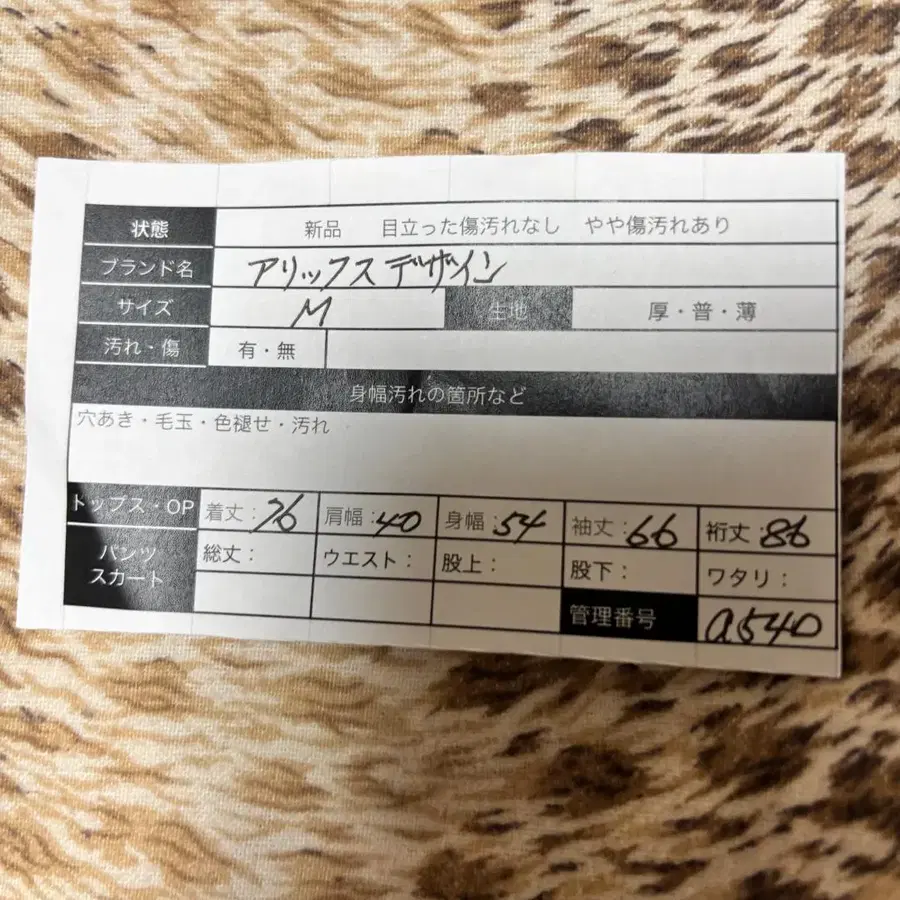 状態 新品 目立った傷汚れなし やや傷汚れあり
ブランド名 アリックスデザイン
サイズ M 生地 厚・普・薄
汚れ・傷 有・無
身幅汚れの箇所など
穴あき・毛玉・色褪せ・汚れ
トップス・OP 着丈:76 肩幅:40 身幅:54 袖丈:66 裄丈:86
パンツ スカート 総丈: ウエスト: 股上: 股下: ワタリ:
管理番号 a540